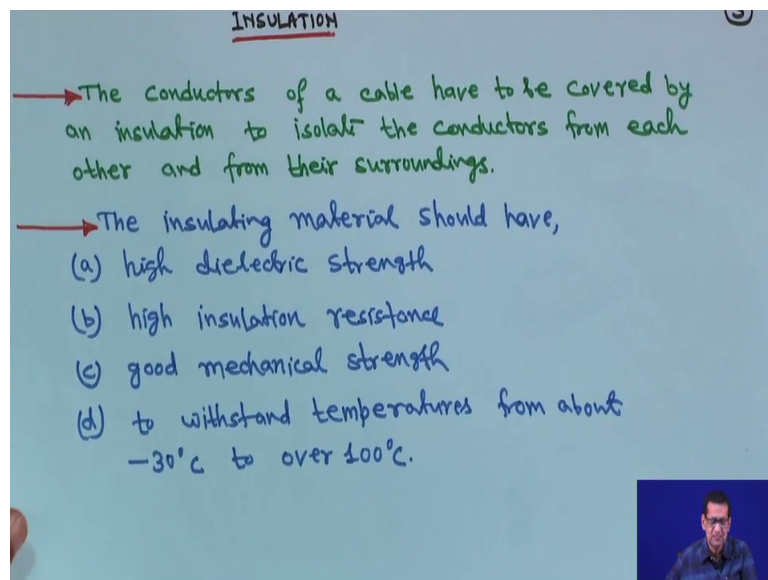 INSULATION
The conductors of a cable have to be covered by
an insulation to isolate the conductors from each
other and from their surroundings.
The insulating material should have,
(a) high dielectric strength
(b) high insulation resistance
(c) good mechanical strength
(d) to withstand temperatures from about
-30°c to over 100°c.